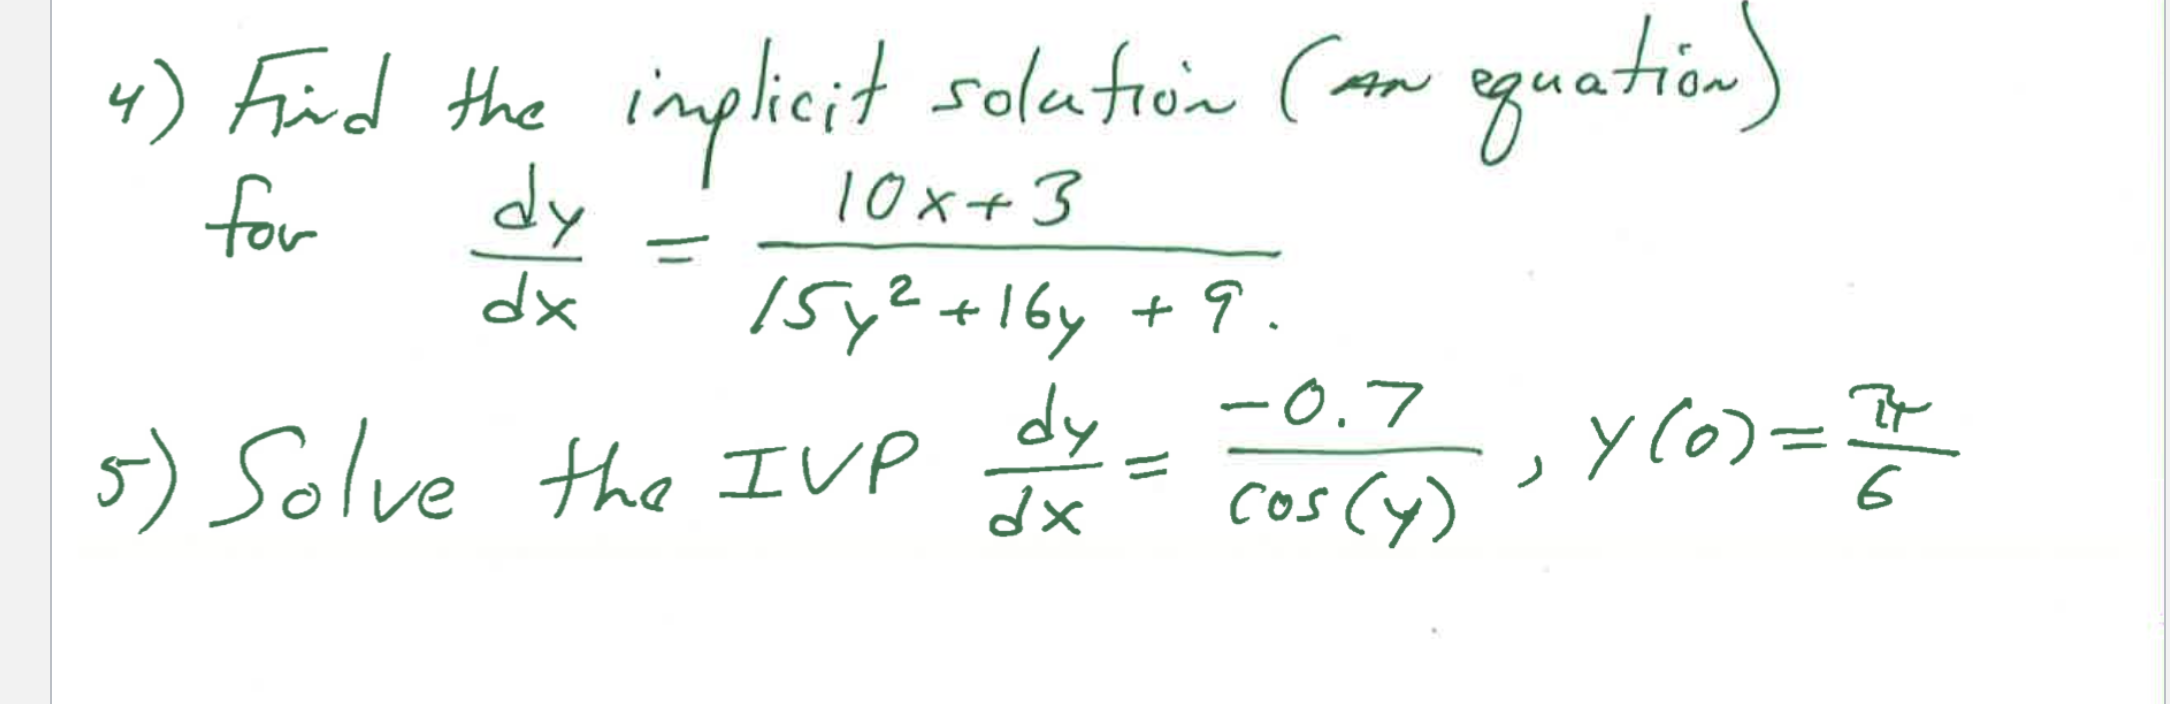 4) Find the implicit solution (an equation)
for dy/dx = 10x+3 / 15y² + 16y + 9.
5) Solve the IVP dy/dx = -0.7 / cos(y) , y(0) = π/6